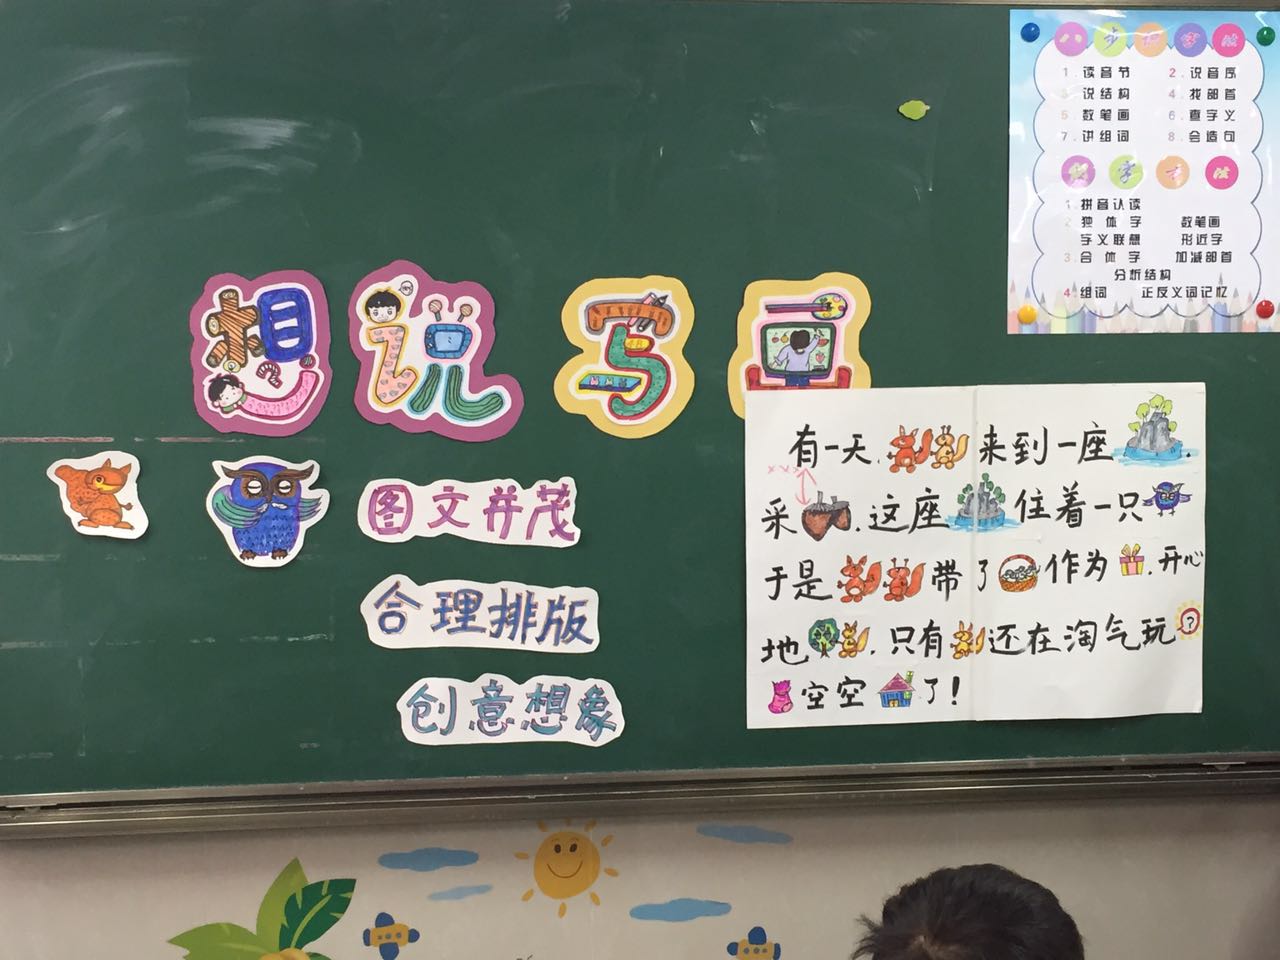 八步识字法
1.读音节 2.说音序
3.说结构 4.找部首
5.数笔画 6.查字义
7.讲组词 8.会造句
识字方法
1.拼音认读
2.独体字 数笔画
字义联想 形近字
3.合体字 加减部首
分析结构
4.组词 正反义词记忆
想说写画
图文并茂
合理排版
创意想象
有一天、来到一座.
采.这座住着一只
于是带了作为.开心
地.只有还在淘气玩?
空空了!